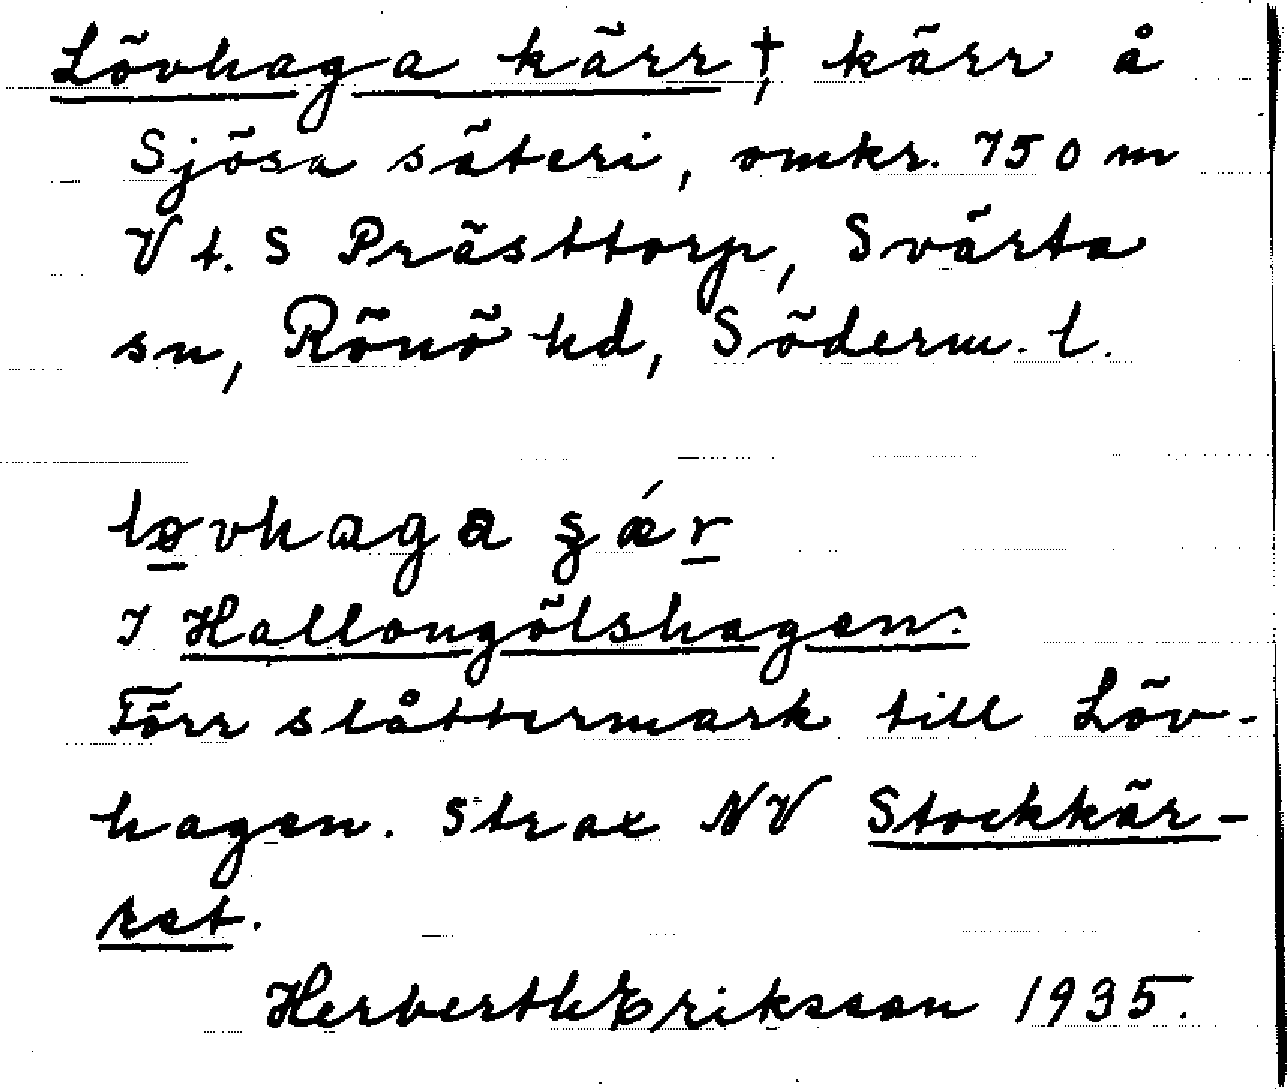 Lövhaga kärr †, kärr å
Sjösa säteri, omkr. 750 m
V t. S Prästtorp, Svärta
sn, Rönö hd, Söderm. l.
løvhaga ʒǽr
I Hallongölshagen.
Förr slåttermark till Löv-
hagen. Strax NV Stockkär-
ret.
Herberth Eriksson 1935.